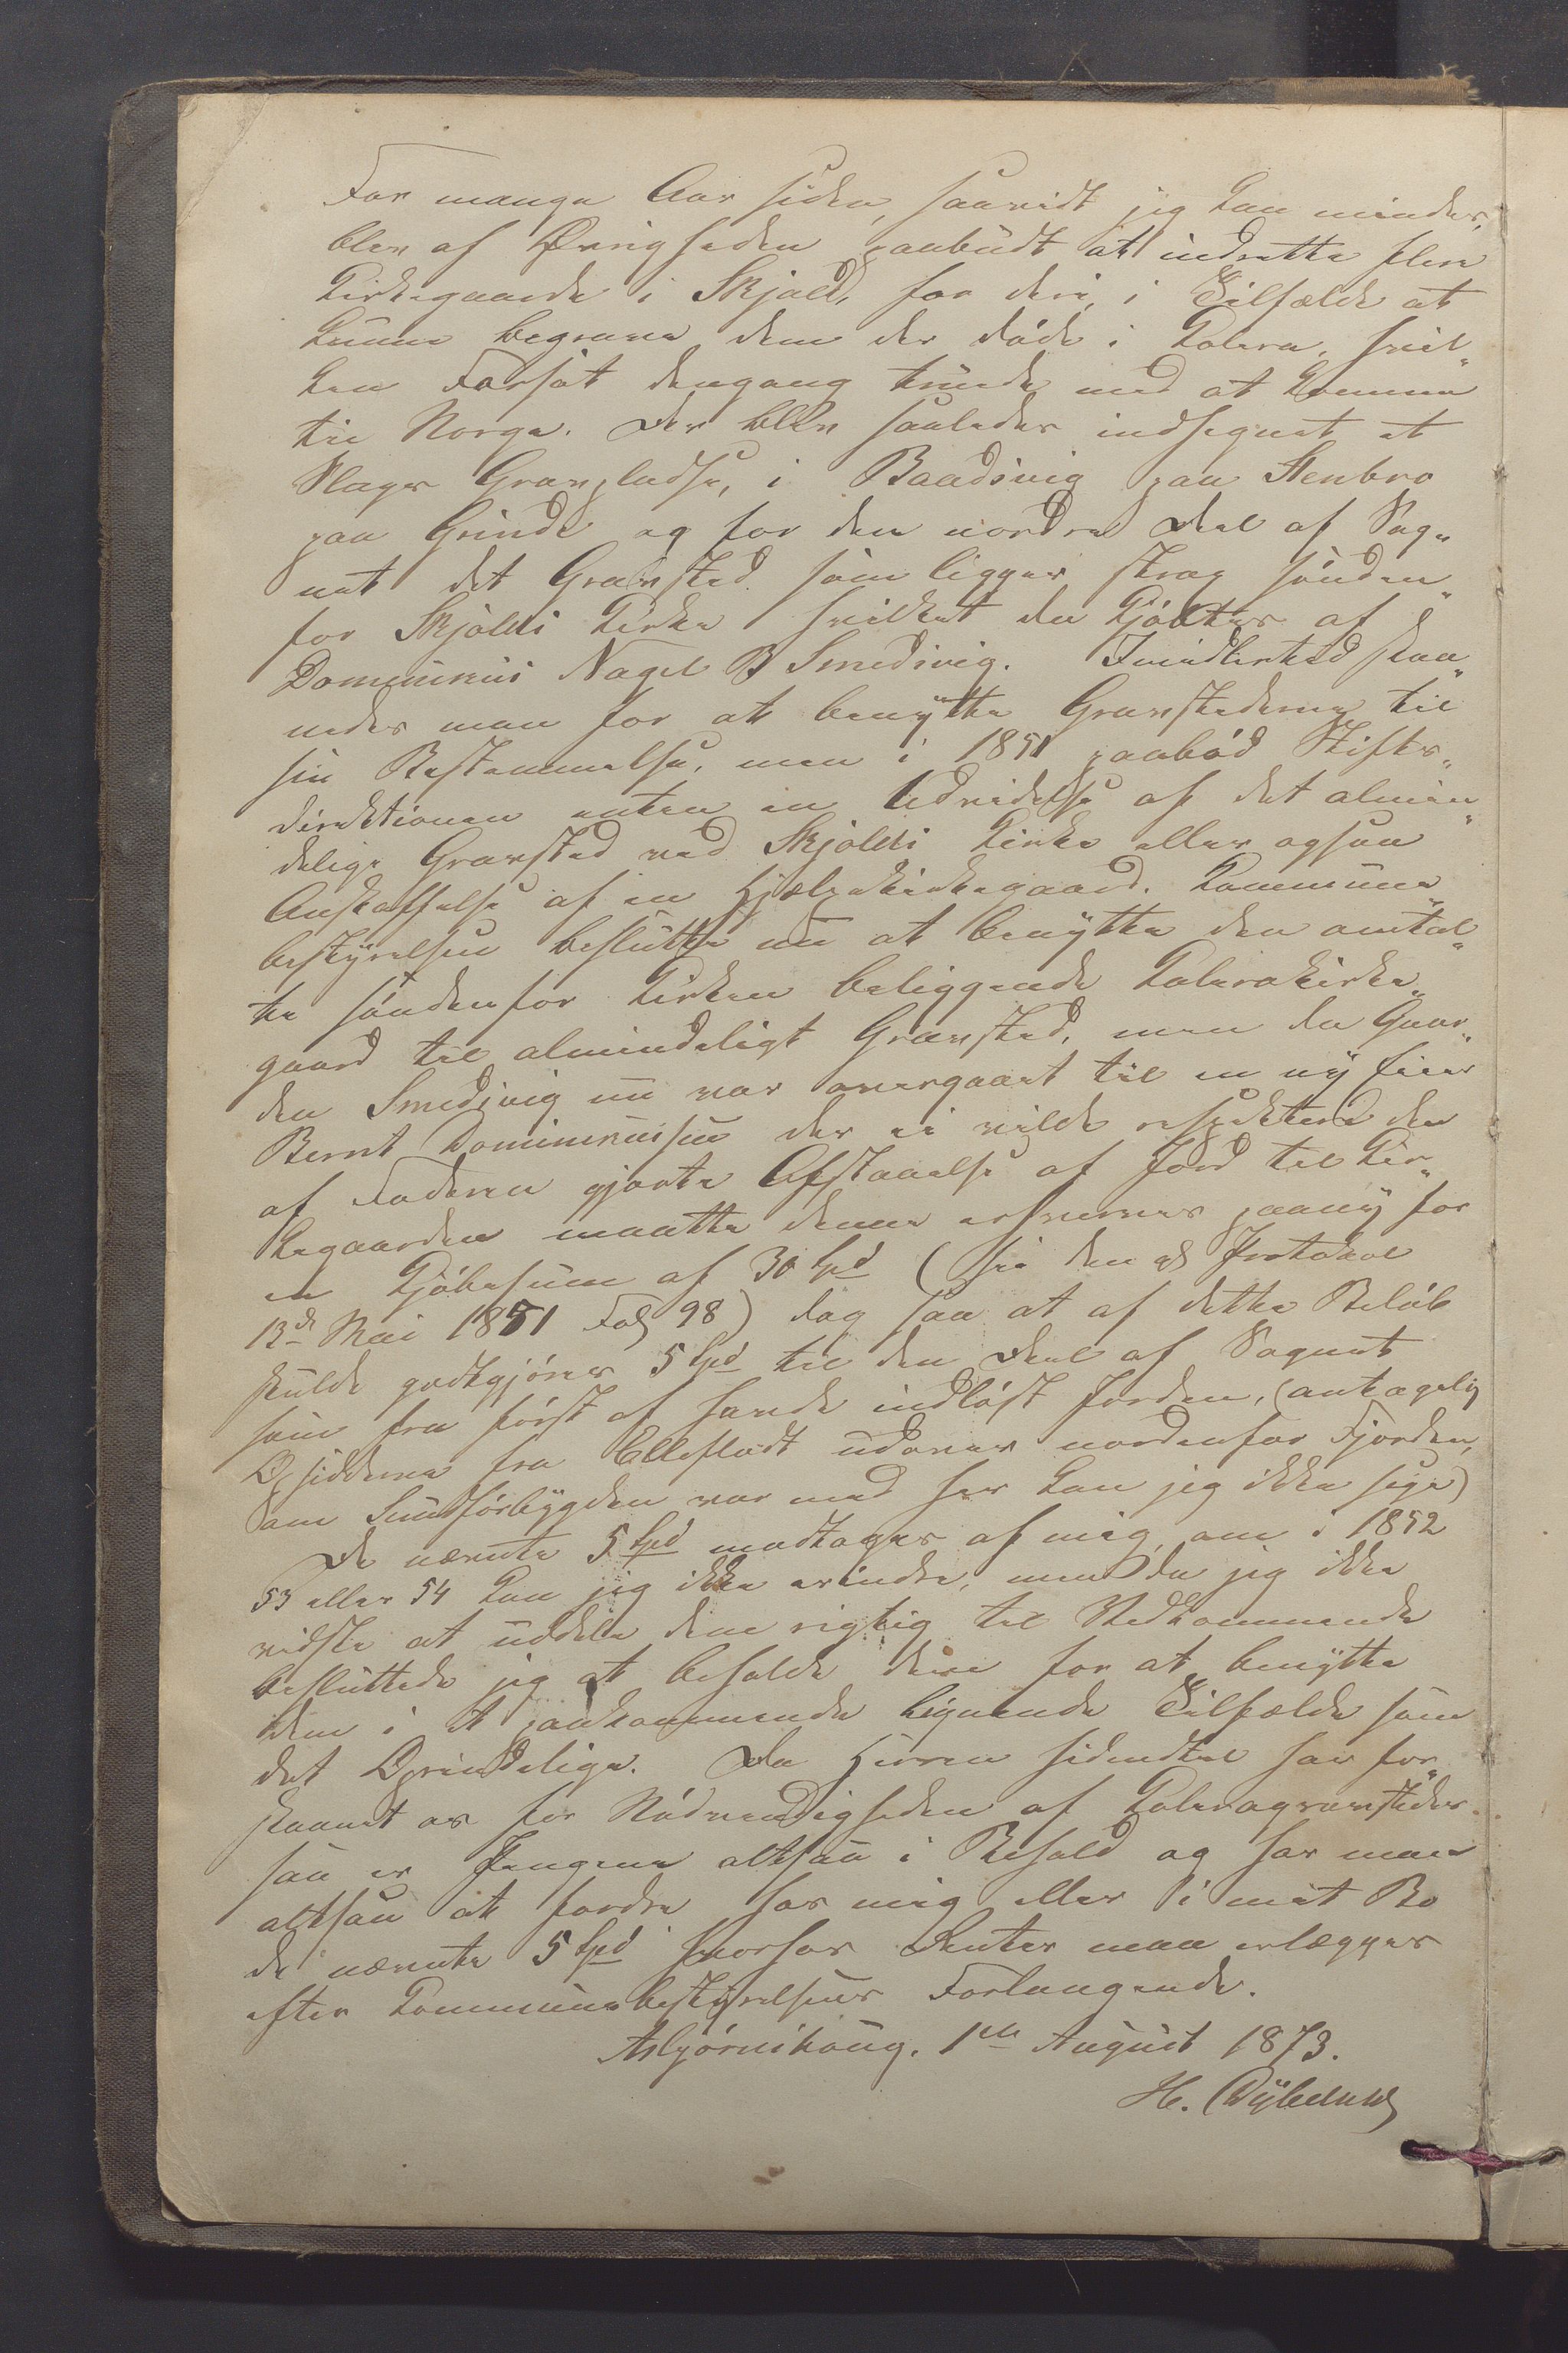 For mange Aar siden, saavidt jeg kan mindes,
blev af Øvrigheden paabudt at indrette flere
Kirkegaarde i Skjold, for deri, i Tilfælde at
kunne begrave dem der døde i Kolera, hvil„
ken Farsot dengang truede med at komme
til Norge. Der blev saaledes indhegnet et
Slags Gravpladse, i Baadsvig paa Stenbro
paa Grinde og for den nordre Deel af Sog„
net det Gravsted som ligger strax sønden„
for Skjolds Kirke hvilket da kjøbtes af
Dominicus Nagel B Smedsvig. Imidlertid skaa„
nedes man for at benytte Gravstederne til
sin Bestemmelse, men i 1851 paabød Stifts„
direktionen enten en Udvidelse af det almin„
delige Gravsted ved Skjolds Kirke eller ogsaa
Anskaffelse af en Hjælpekirkegaard. Kommune„
bestyrelsen beslutte nu at benytte den omtal„
te søndenfor Kirken beliggende Kolerakirke„
gaard til almindeligt Gravsted, men da Gaar„
den Smedsvig nu var overgaaet til en ny Eier
Bernt Dominicussen der ei vilde respektere den
af Faderen gjorte Afstaaelse af Jord til Kir„
kegaarden maatte denne erhverves paany for
en Kjøbesum af 30 Spd (see den Protokol
13de Mai 1851 Fol 98) dog saa at af dette Beløb
skulde godtgjøres 5 Spd til den Deel af Sognet
som fra først af havde indløst Jorden, (antagelig
Opsidderne fra Alleflodt udover nordenfor Fjorden,
om Sundførbygden var med her kan jeg ikke sige)
De nævnte 5 Spd modtoges af mig, om i 1852
53 eller 54 kan jeg ikke erindre, men da jeg ikke
vidste at uddele dem rigtig til Vedkommende
besluttede jeg at beholde disse for at benytte
dem i et paakommende lignende Tilfælde som
det Oprindelige. Da Herren sidendtil har for„
skaanet os for Nødvendigheden af Koleragravsteder
saa er Pengene altsaa i Behold og har man
altsaa at fordre hos mig eller i mit Bo
de nævnte 5 Spd hvorfor Renter maa erlægges
efter Kommunebestyrelsens Forlangende.
Asbjørnshaug. 1ste August 1873.
H.